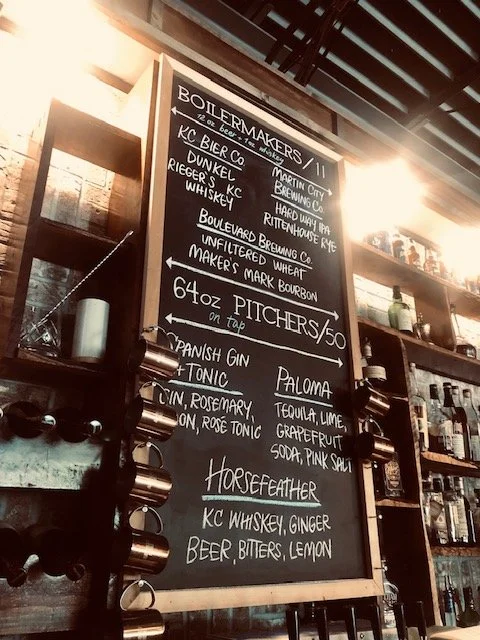 BOILERMAKERS/11
12 oz beer + 1oz whiskey
KC BIER CO.
DUNKEL
RIEGER'S KC
WHISKEY
MARTIN CITY
BREWING CO.
HARD WAY IPA
RITTENHOUSE RYE
BOULEVARD BREWING CO.
UNFILTERED WHEAT
MAKER'S MARK BOURBON
64oz PITCHERS/50
on tap
SPANISH GIN
+ TONIC
GIN, ROSEMARY,
ROSE TONIC
PALOMA
TEQUILA, LIME,
GRAPEFRUIT
SODA, PINK SALT
HORSEFEATHER
KC WHISKEY, GINGER
BEER, BITTERS, LEMON